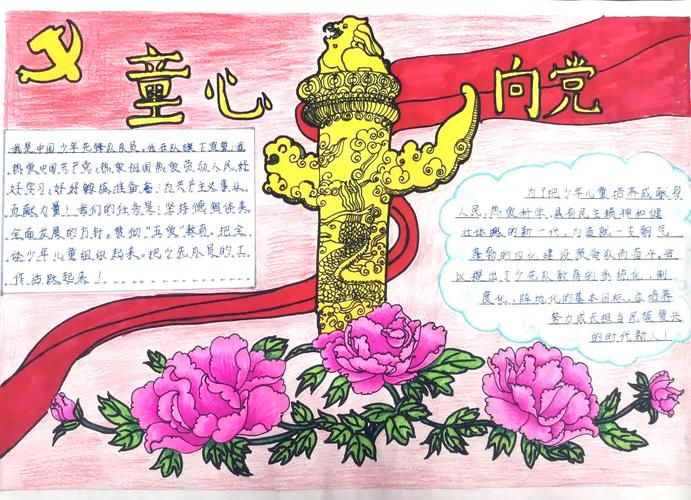 童心向党
我是中国少年先锋队队员。我在队旗下宣誓：我
热爱中国共产党，热爱祖国，热爱劳动人民，好
好学习，好好锻炼，准备着：为共产主义事业
贡献力量！我们的任务是：坚持德智体美
全面发展的方针。贯彻“五爱”教育。把全
体少年儿童组织起来。把少先队员的工
作活跃起来！
为了把少年儿童培养成献身
人民，热爱科学，具有民主精神和健
壮体魄的新一代，为造就一支朝气
蓬勃的四化建设预备队而奋斗，会
议提出了少先队教育的系统化，制
度化，阵地化的基本目标。应培养
努力成长担当民族复兴
的时代新人！